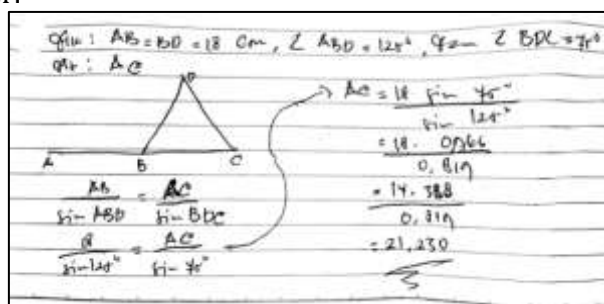 AB = BD = 18 cm, ∠ ABD = 125°, ∠ BDC = 75°
: AC
D
A B C
AB / sin ABD = AC / sin BDC
/ sin 125° = AC / sin 75°
→ AC = 18 sin 75° / sin 125°
= 18 . 0,966 / 0,819
= 17.388 / 0,819
= 21,230